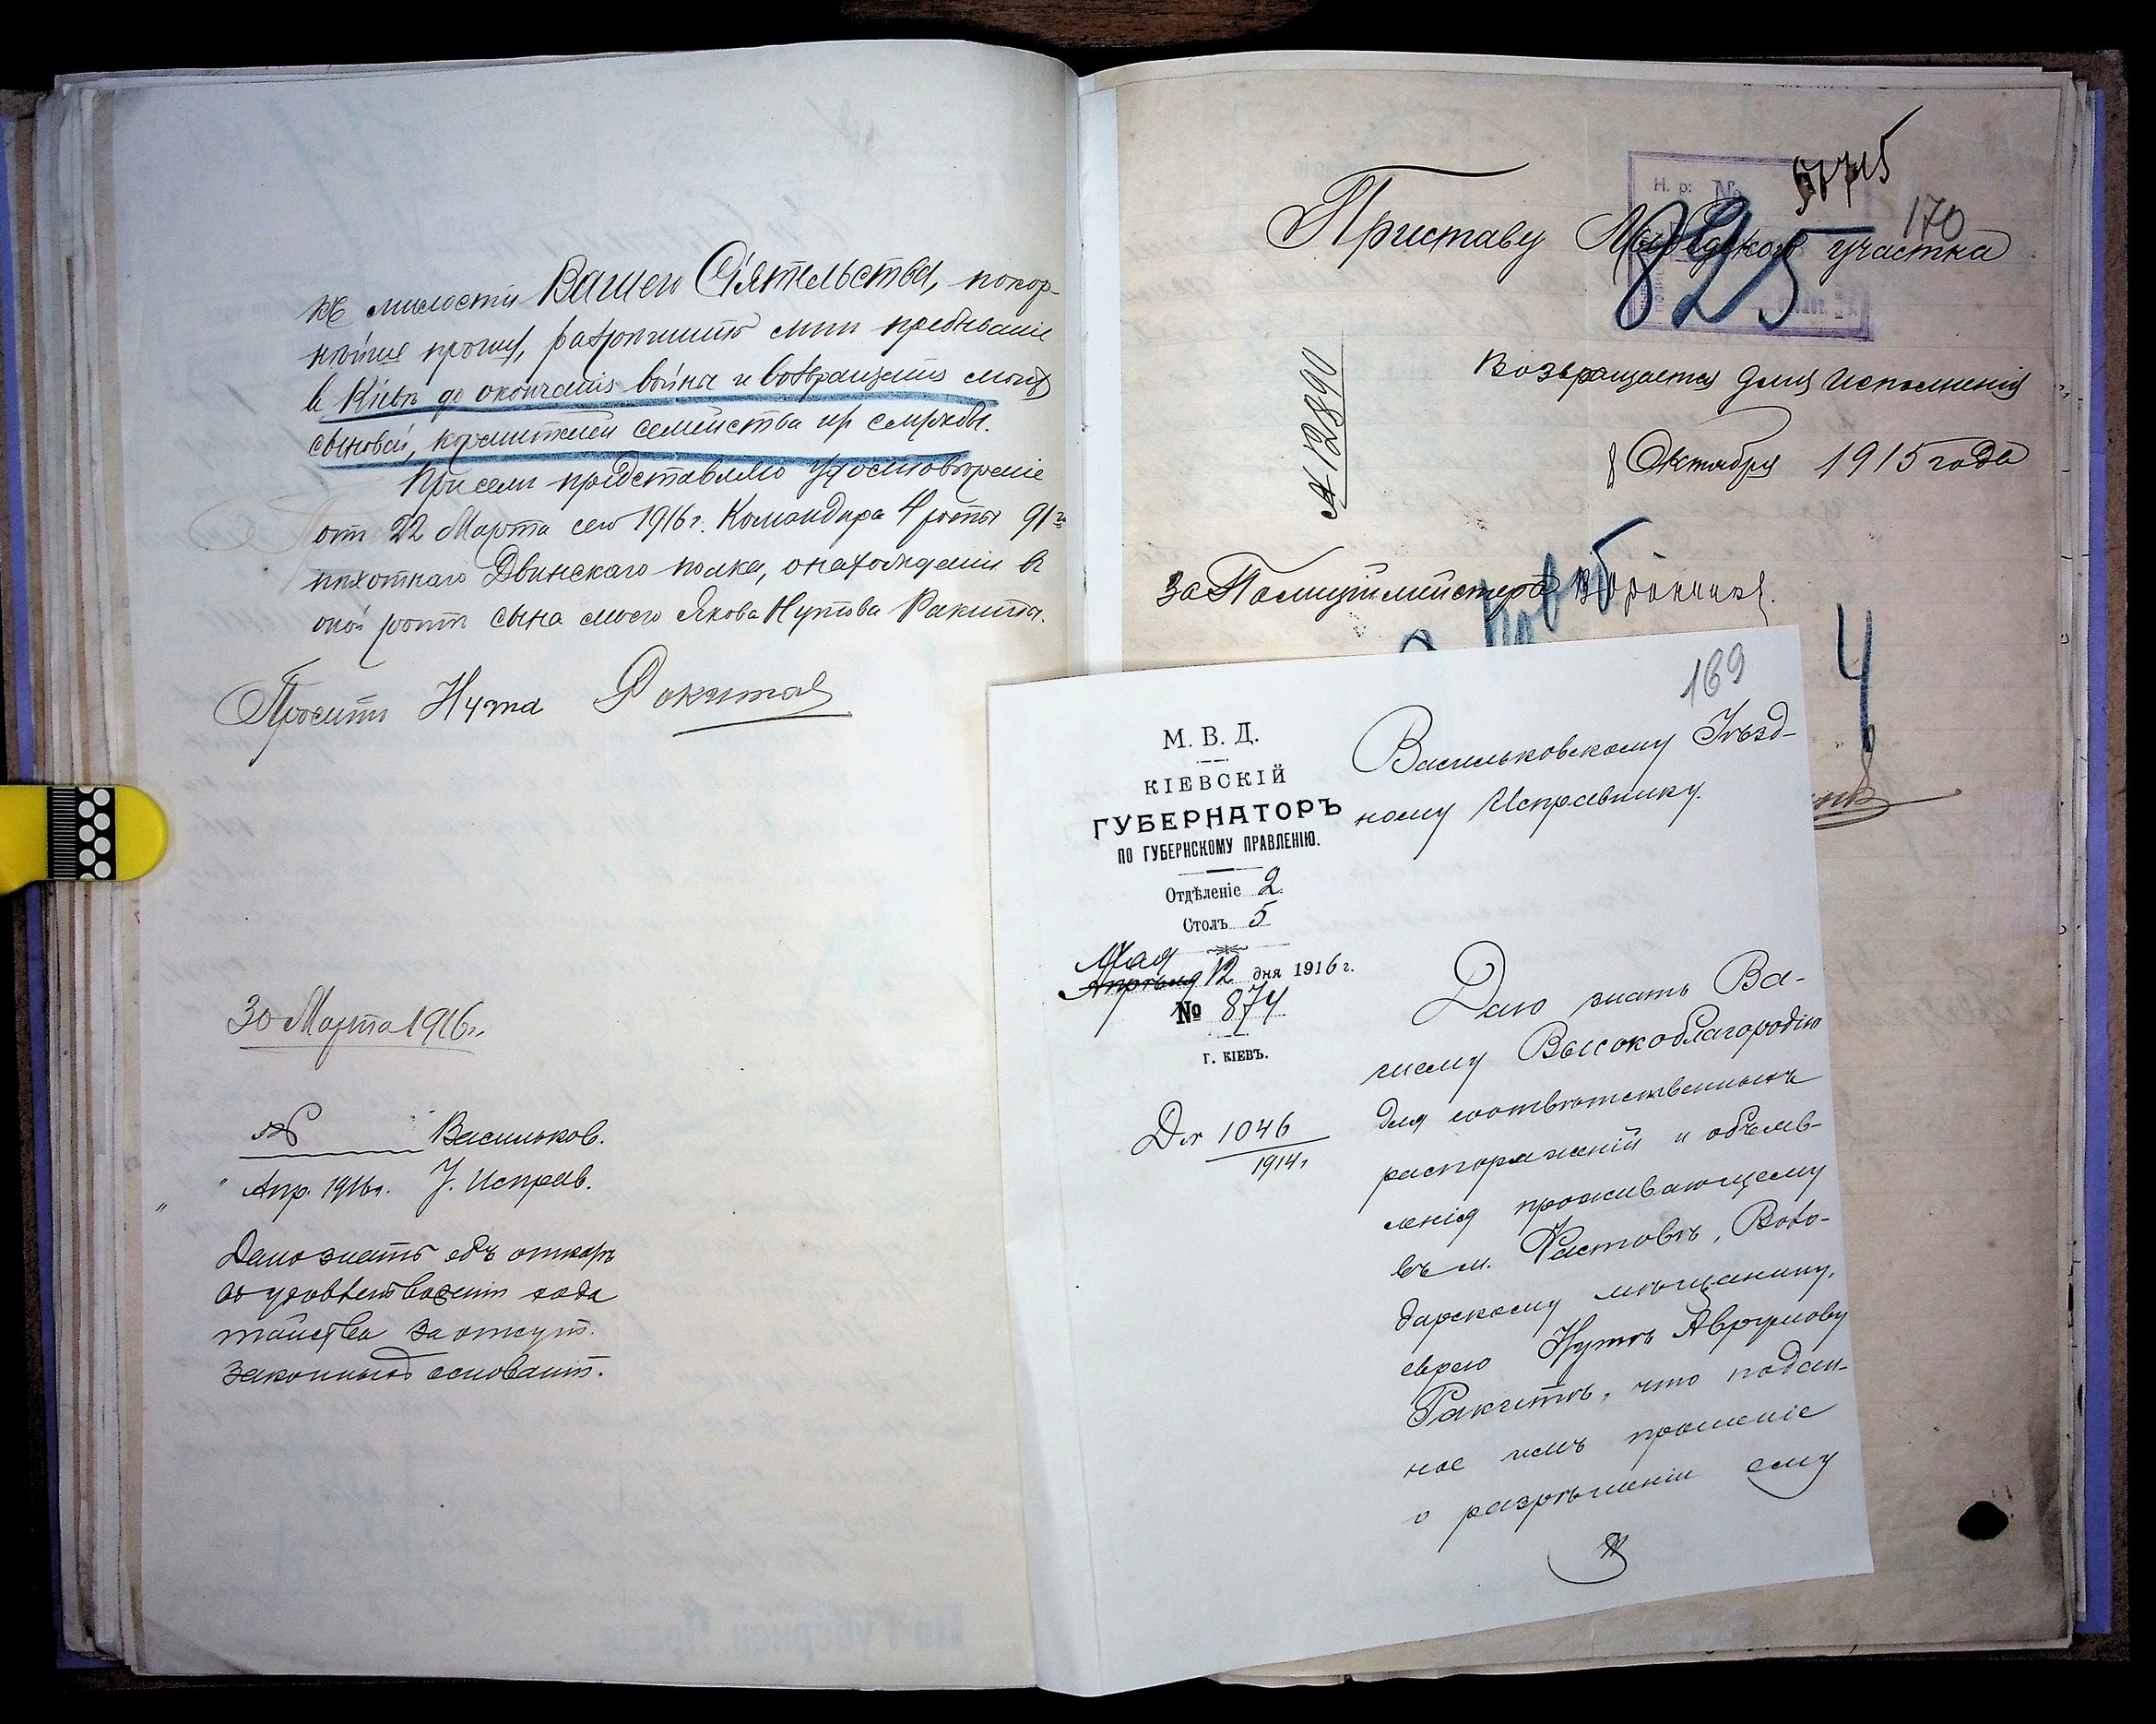 къ милости Вашего Сіятельства, покор-
нѣйше прошу, разрѣшить мнѣ пребываніе
въ Кіевѣ до окончанія войны и возвращенія моихъ
сыновей, кормителей семейства изъ службы.
При семъ представляю удостовѣреніе
отъ 22 Марта сего 1916 г. Командира 4 роты 91го
пѣхотнаго Двинскаго полка, о нахожденіи въ
оной ротѣ сына моего Якова Нутова Ракита.
Проситъ Нута Ракита
30 Марта 1916 г.
№ Васильков.
" Апр. 1916 г. У. Исправ.
Дано знать объ отказѣ
въ удовлетвореніи хода
тайства за отсут.
законныхъ основаній.
170
Н. р. №
825
Приставу Лыбедского участка
№ 12890
Возвращается для исполненія
8 Октября 1915 года
За Полиціймейстера
4
169
М. В. Д.
КІЕВСКІЙ
ГУБЕРНАТОРЪ
ПО ГУБЕРНСКОМУ ПРАВЛЕНІЮ.
Отдѣленіе 2
Столъ 5
Мая
Апрѣля 12 дня 1916 г.
№ 874
Г. КІЕВЪ.
Дѣл 1046
1914 г.
Васильковскому Уѣзд-
ному Исправнику.
Даю знать Ва-
шему Высокоблагородію
для соотвѣтственныхъ
распоряженій и объяв-
ленія проживающему
въ м. Фастовѣ, Бого-
дарскому мѣщанину,
еврею Нутѣ Аврумову
Ракитѣ, что подан-
ное имъ прошеніе
о разрѣшеніи ему